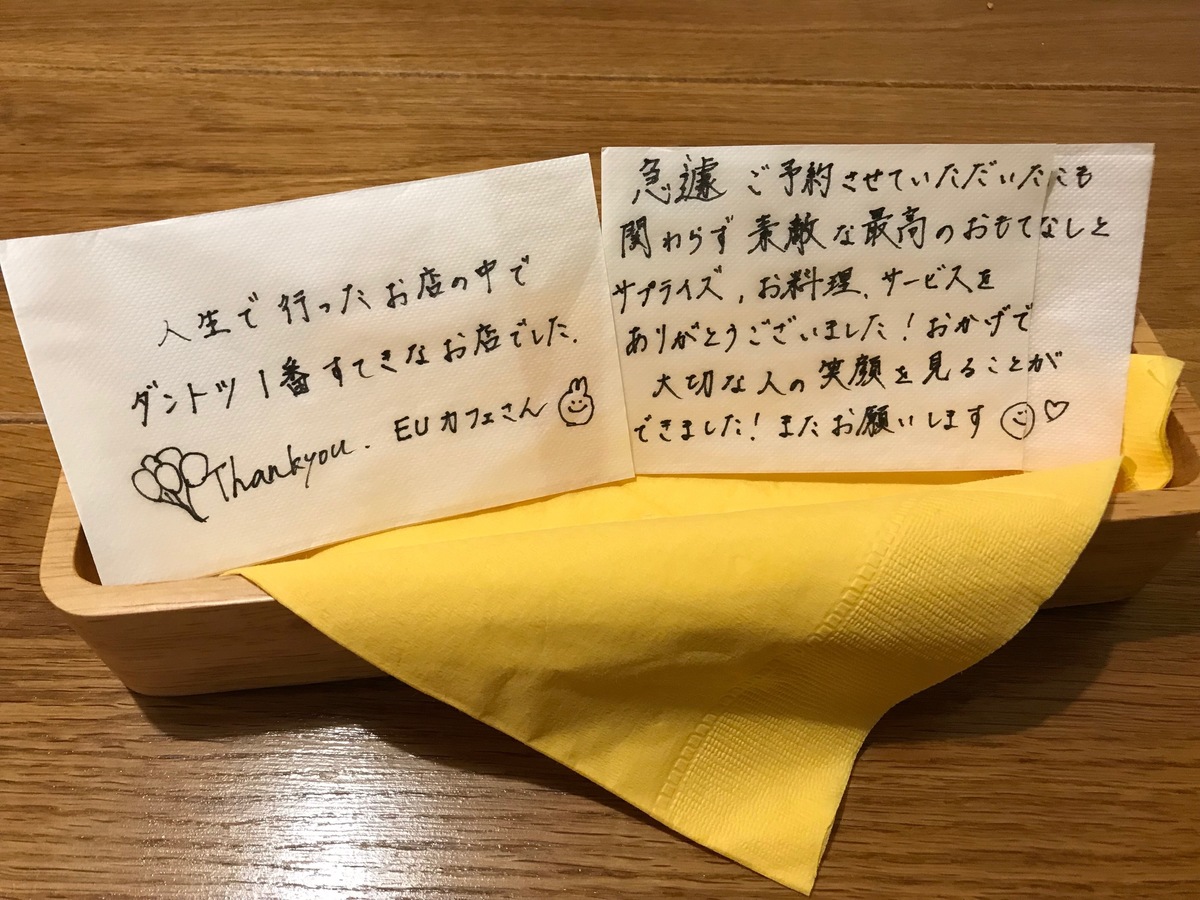 人生で行ったお店の中で
ダントツ1番すてきなお店でした.
Thankyou. EUカフェさん
急遽ご予約させていただいたにも
関わらず素敵な最高のおもてなしと
サプライズ、お料理、サービスを
ありがとうございました!おかげで
大切な人の笑顔を見ることが
できました!またお願いします